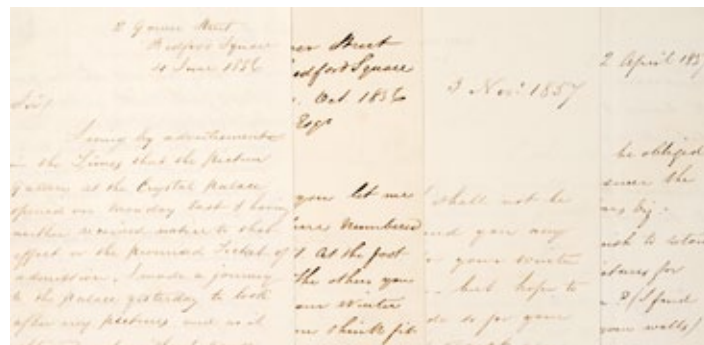 2 Gower Street
Bedford Square
4 June 1856
Sir,
Seeing by advertisements
in the Times that the Picture
Gallery at the Crystal Palace
opened on Monday last & having
neither received notice to that
effect or the promised Ticket of
admission. I made a journey
to the Palace yesterday to look
after my pictures and as it
wer Street
edford Square
Oct 1856
Esqr
you let me
numbered
At the foot
The others you
our Winter
me think fit
3 Novr 1857
shall not be
you any
your winter
but hope to
do so for your
2 April 185
be obliged
the
by
to
for
I find
your walls/